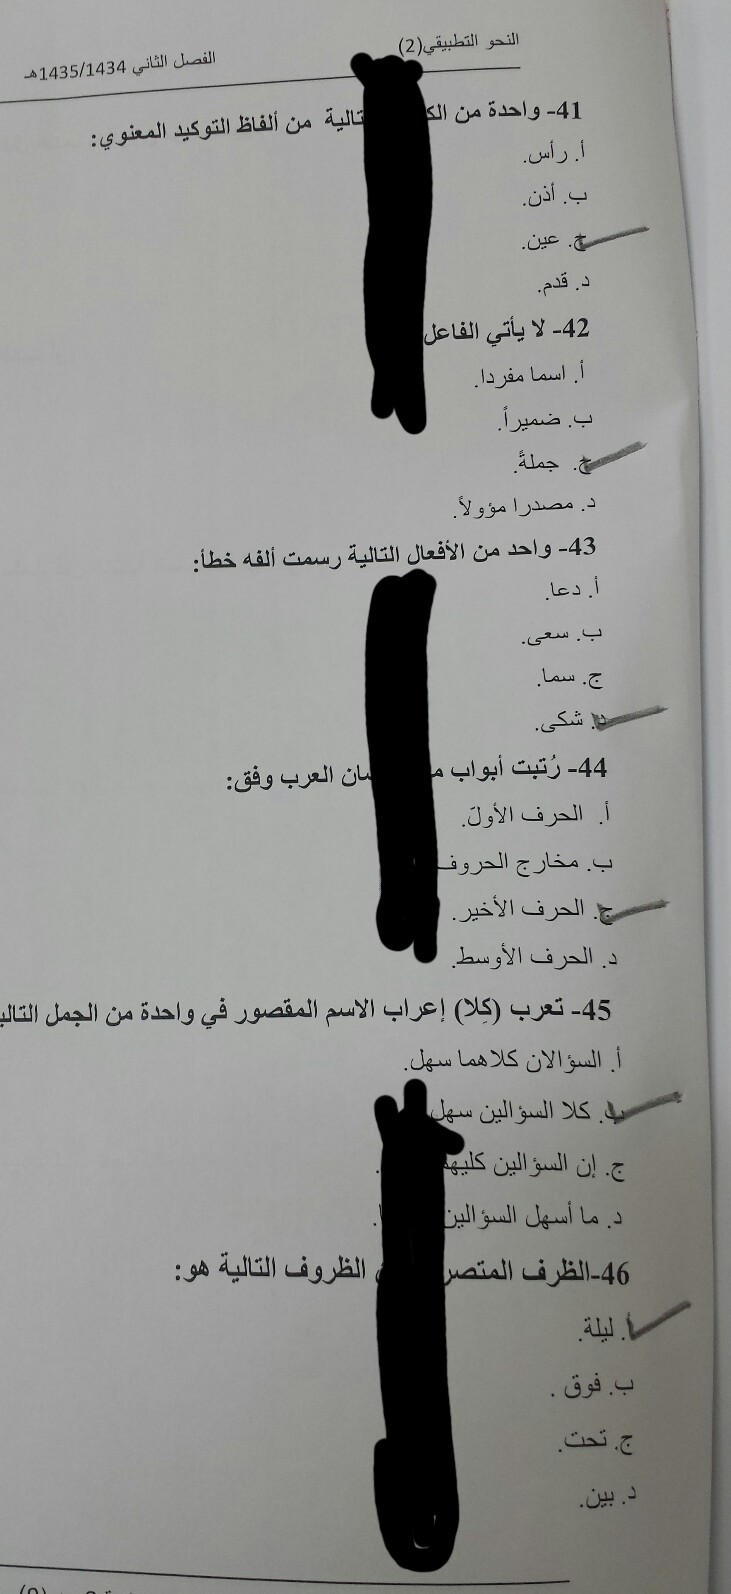 النحو التطبيقي(2)
الفصل الثاني 1435/1434هـ
41- واحدة من تالية من ألفاظ التوكيد المعنوي:
أ. رأس.
ب. أذن.
ج. عين.
د. قدم.
42- لا يأتي الفاعل
أ. اسما مفردا.
ب. ضميراً.
ج. جملةً.
د. مصدرا مؤولاً.
43- واحد من الأفعال التالية رسمت ألفه خطأ:
أ. دعا.
ب. سعى.
ج. سما.
د. شكى.
44- رُتبت أبواب العرب وفق:
أ. الحرف الأول.
ب. مخارج الحروف
ج. الحرف الأخير.
د. الحرف الأوسط.
45- تعرب (كِلا) إعراب الاسم المقصور في واحدة من الجمل
أ. السؤالان كلاهما سهل.
ب. كلا السؤالين سهل
ج. إن السؤالين
د. ما أسهل السؤالين
46-الظرف الظروف التالية هو:
أ. ليلة.
ب. فوق .
ج. تحت.
د. بين.